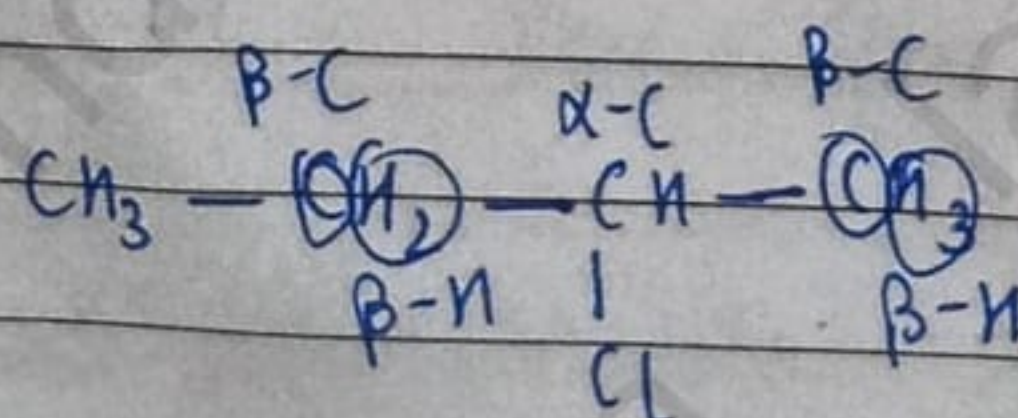 β-C α-C β-C
CH₃ — CH₂ — CH — CH₃
β-H | β-H
Cl